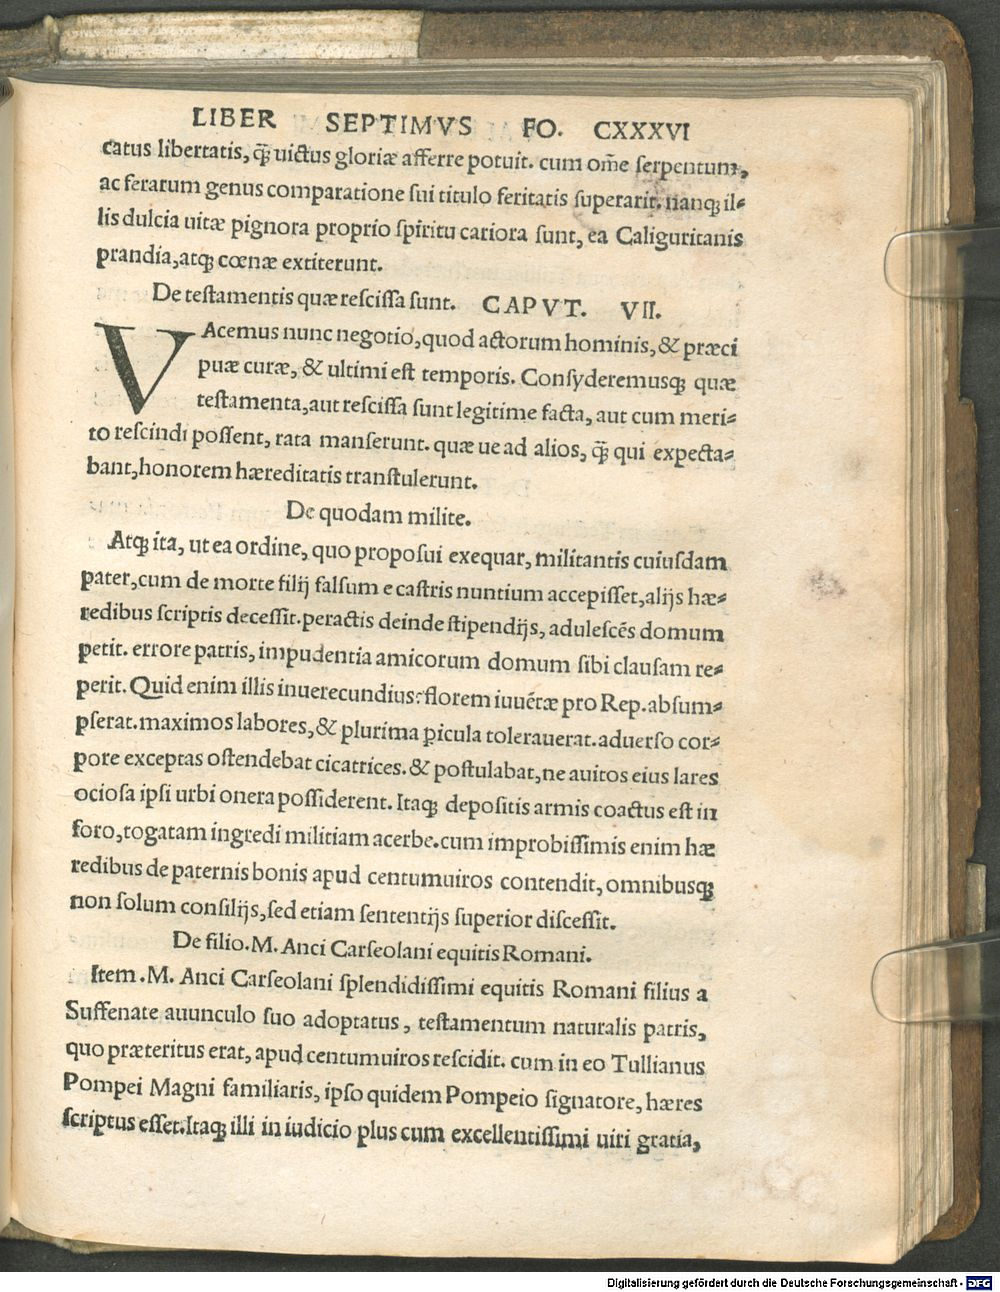 LIBER SEPTIMVS FO. CXXXVI
catus libertatis, q̃ uictus gloriæ afferre potuit. cum om̃e ſerpentum,
ac ferarum genus comparatione ſui titulo feritatis ſuperarit. nanq; il⸗
lis dulcia uitæ pignora proprio ſpiritu cariora ſunt, ea Caliguritanis
prandia, atq; cœnæ extiterunt.
De teſtamentis quæ reſciſſa ſunt. CAPVT. VII.
VAcemus nunc negotio, quod actorum hominis, & præci
puæ curæ, & ultimi eſt temporis. Conſyderemusq; quæ
teſtamenta, aut reſciſſa ſunt legitime facta, aut cum meri⸗
to reſcindi poſſent, rata manſerunt. quæ ue ad alios, q̃ qui expecta⸗
bant, honorem hæreditatis tranſtulerunt.
De quodam milite.
Atq; ita, ut ea ordine, quo propoſui exequar, militantis cuiuſdam
pater, cum de morte filij falſum e caſtris nuntium accepiſſet, alijs hæ⸗
redibus ſcriptis deceſſit. peractis deinde ſtipendijs, aduleſcẽs domum
petit. errore patris, impudentia amicorum domum ſibi clauſam re⸗
perit. Quid enim illis inuerecundius? florem iuuẽtæ pro Rep. abſum⸗
pſerat. maximos labores, & plurima ꝑicula tolerauerat. aduerſo cor⸗
pore exceptas oſtendebat cicatrices. & poſtulabat, ne auitos eius lares
ocioſa ipſi urbi onera poſſiderent. Itaq; depoſitis armis coactus eſt in
foro, togatam ingredi militiam acerbe. cum improbiſſimis enim hæ
redibus de paternis bonis apud centumuiros contendit, omnibusq;
non ſolum conſilijs, ſed etiam ſententijs ſuperior diſceſſit.
De filio. M. Anci Carſeolani equitis Romani.
Item. M. Anci Carſeolani ſplendidiſſimi equitis Romani filius a
Suffenate auunculo ſuo adoptatus, teſtamentum naturalis patris,
quo præteritus erat, apud centumuiros reſcidit. cum in eo Tullianus
Pompei Magni familiaris, ipſo quidem Pompeio ſignatore, hæres
ſcriptus eſſet. Itaq; illi in iudicio plus cum excellentiſſimi uiri gratia,
Digitalisierung gefördert durch die Deutsche Forschungsgemeinschaft - DFG